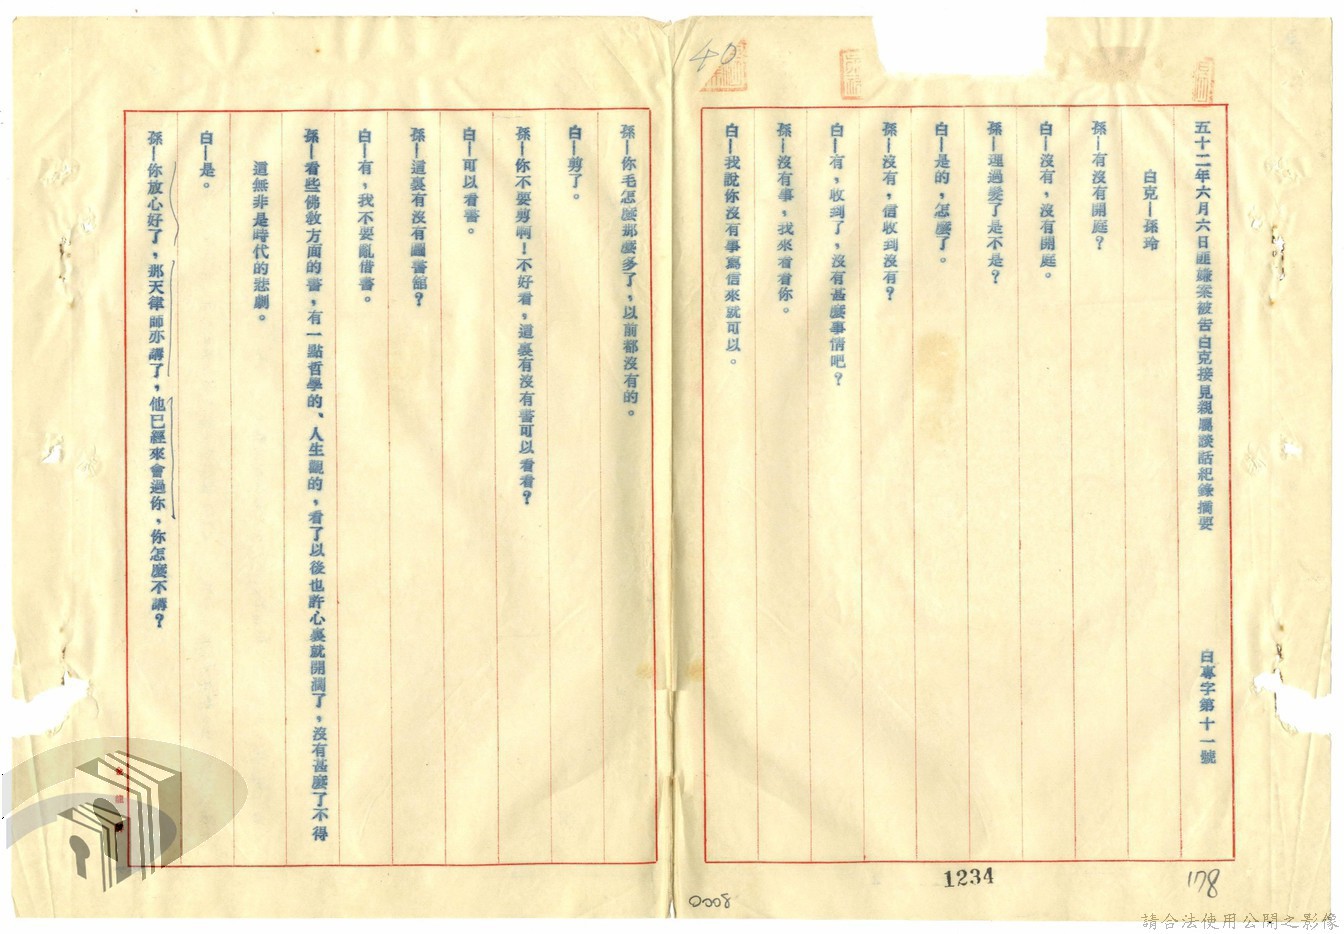 五十二年六月六日匪嫌案被告白克接見親屬談話紀錄摘要 白專字第十一號
白克—孫玲
孫—有沒有開庭？
白—沒有，沒有開庭。
孫—理過髮了是不是？
白—是的，怎麼了。
孫—沒有，信收到沒有？
白—有，收到了，沒有甚麼事情吧？
孫—沒有事，我來看看你。
白—我說你沒有事寫信來就可以。
孫—你毛怎麼那麼多了，以前都沒有的。
白—剪了。
孫—你不要剪啊！不好看，這裏有沒有書可以看看？
白—可以看書。
孫—這裏有沒有圖書館？
白—有，我不要亂借書。
孫—看些佛教方面的書，有一點哲學的、人生觀的，看了以後也許心裏就開濶了，沒有甚麼了不得
這無非是時代的悲劇。
白—是。
孫—你放心好了，那天律師亦講了，他已經來會過你，你怎麼不講？
40
1234
178
0008
請合法使用公開之影像